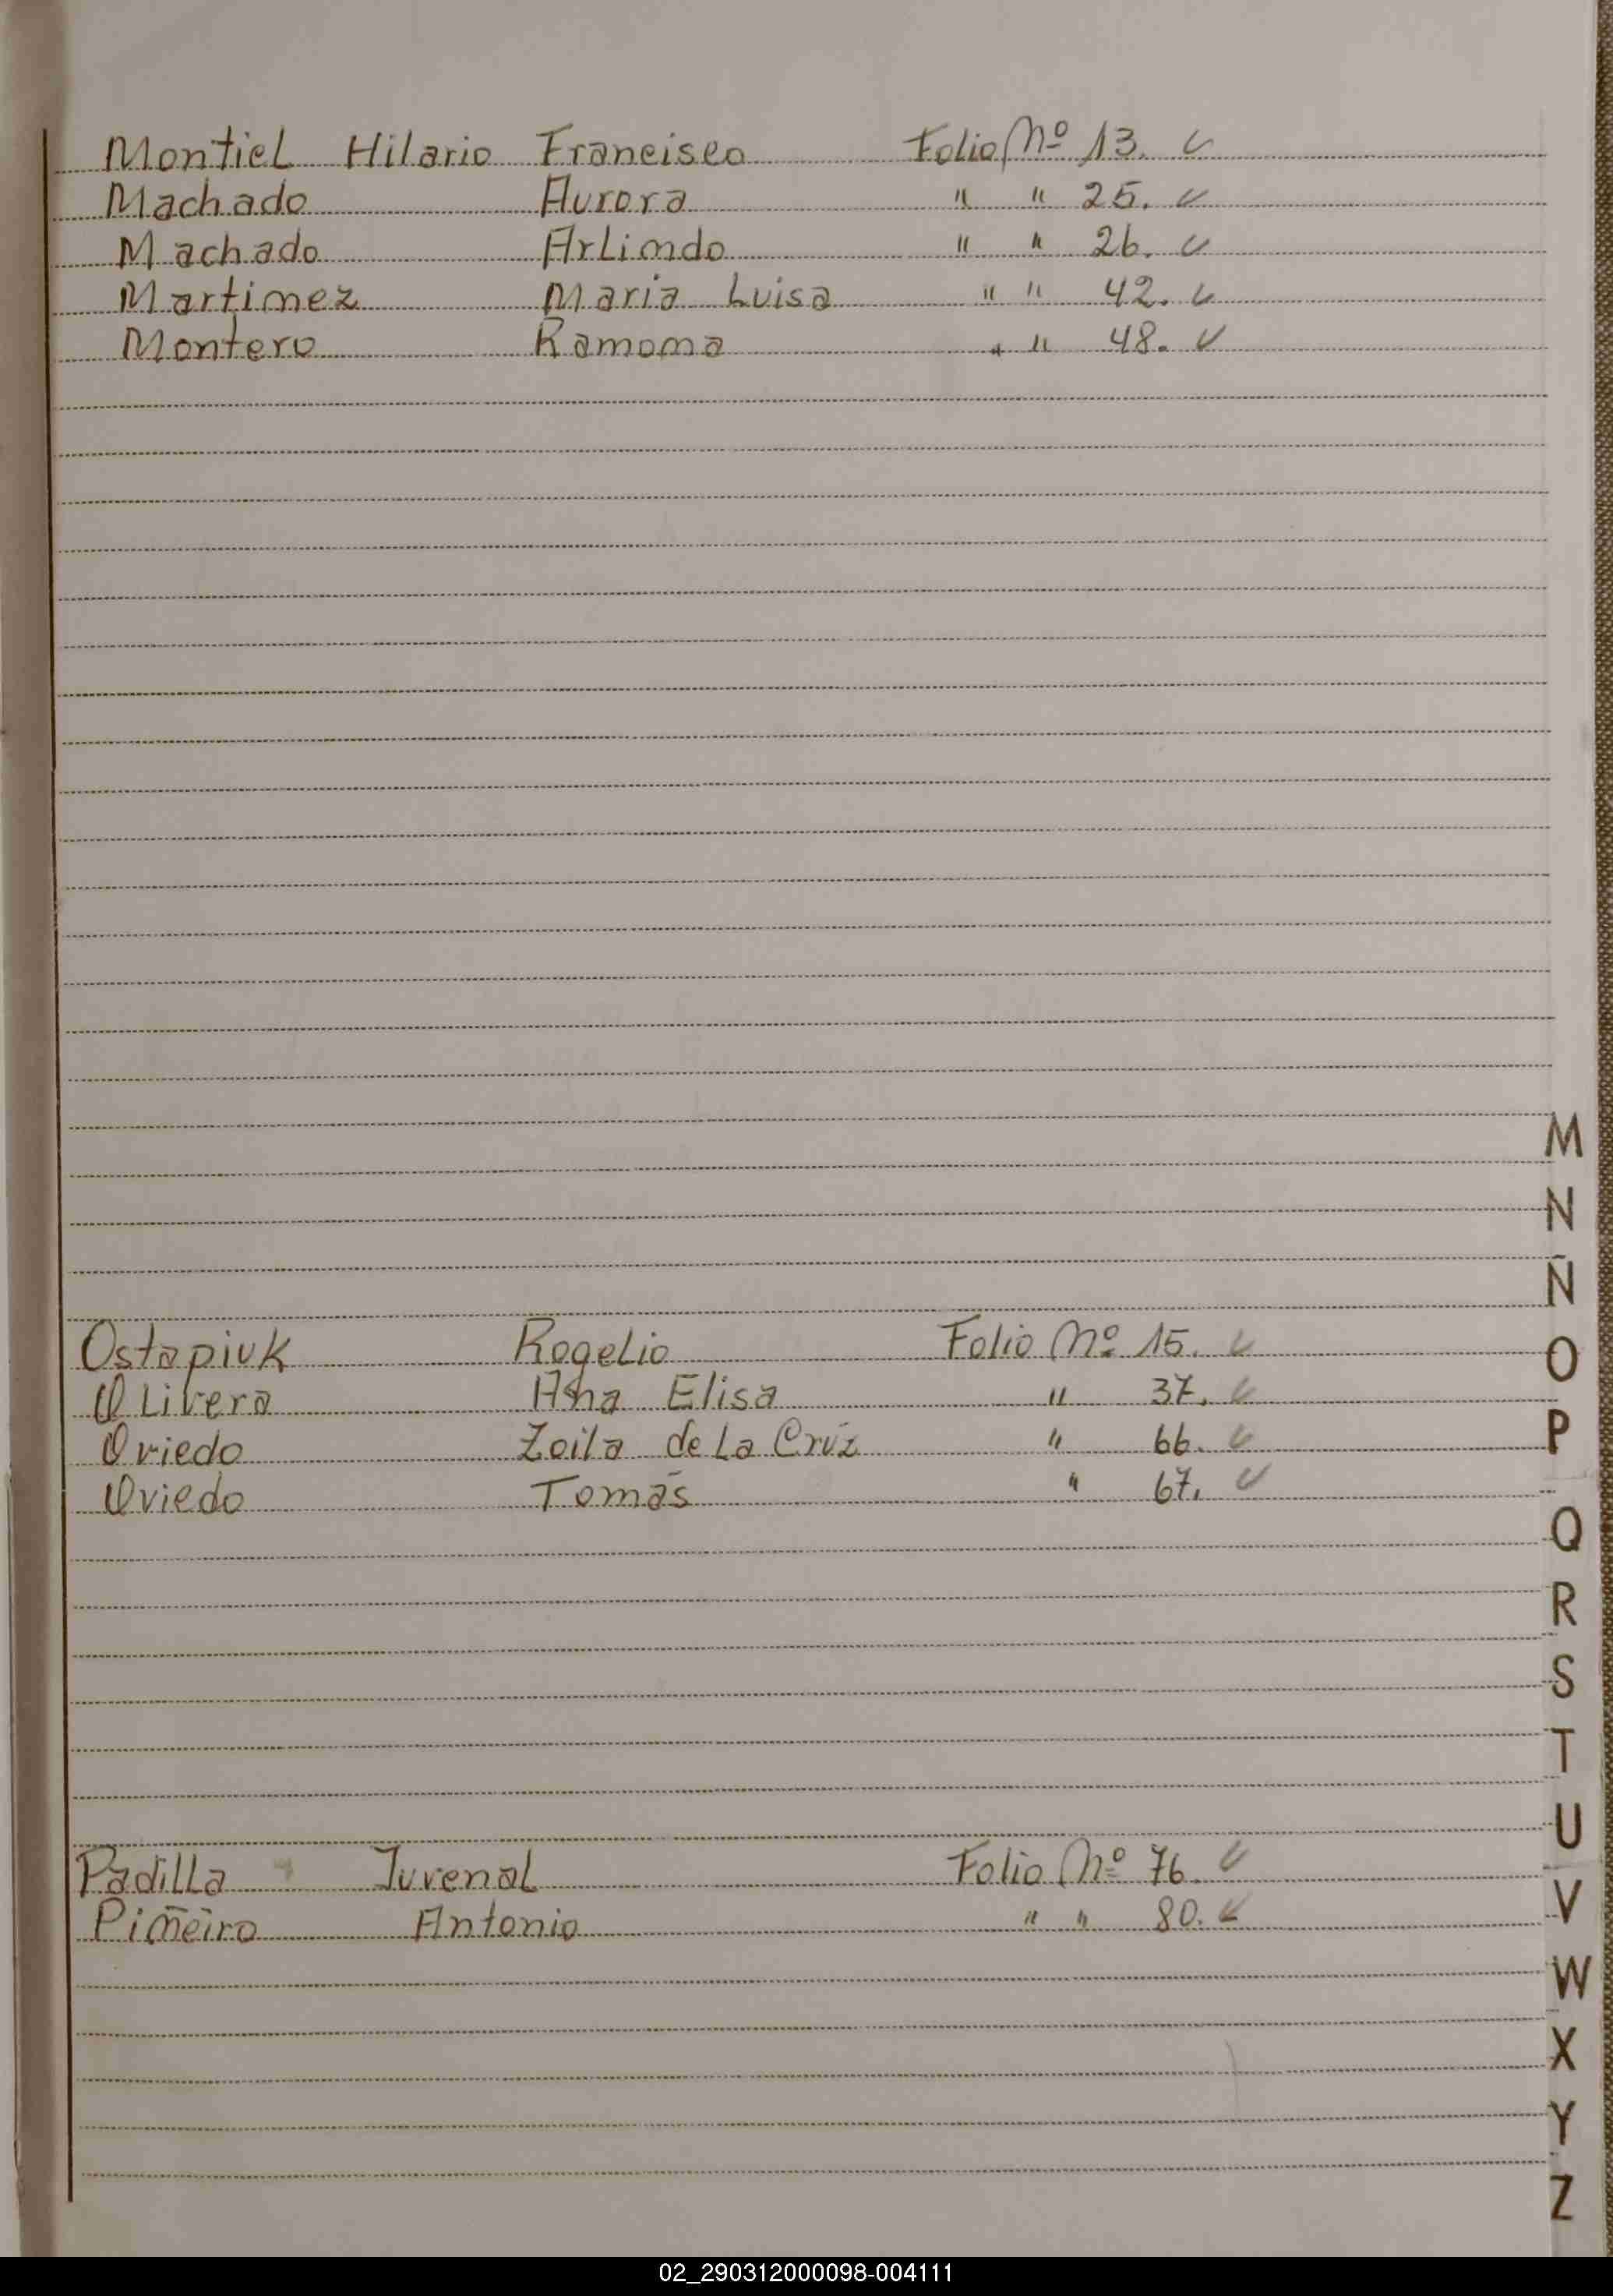 Montiel Hilario Francisco Folio Nº 13. ✓
Machado Aurora " " 25. ✓
Machado Arlindo " " 26. ✓
Martinez Maria Luisa " " 42. ✓
Montero Ramona " " 48. ✓
M
N
Ñ
Ostapiuk Rogelio Folio Nº 15. ✓
O
Olivera Ana Elisa " 37. ✓
Oviedo Zoila de La Cruz " 66. ✓
P
Oviedo Tomás " 67. ✓
Q
R
S
T
U
Padilla Juvenal Folio Nº 76. ✓
V
Piñeiro Antonio " " 80. ✓
W
X
Y
Z
02_290312000098-004111